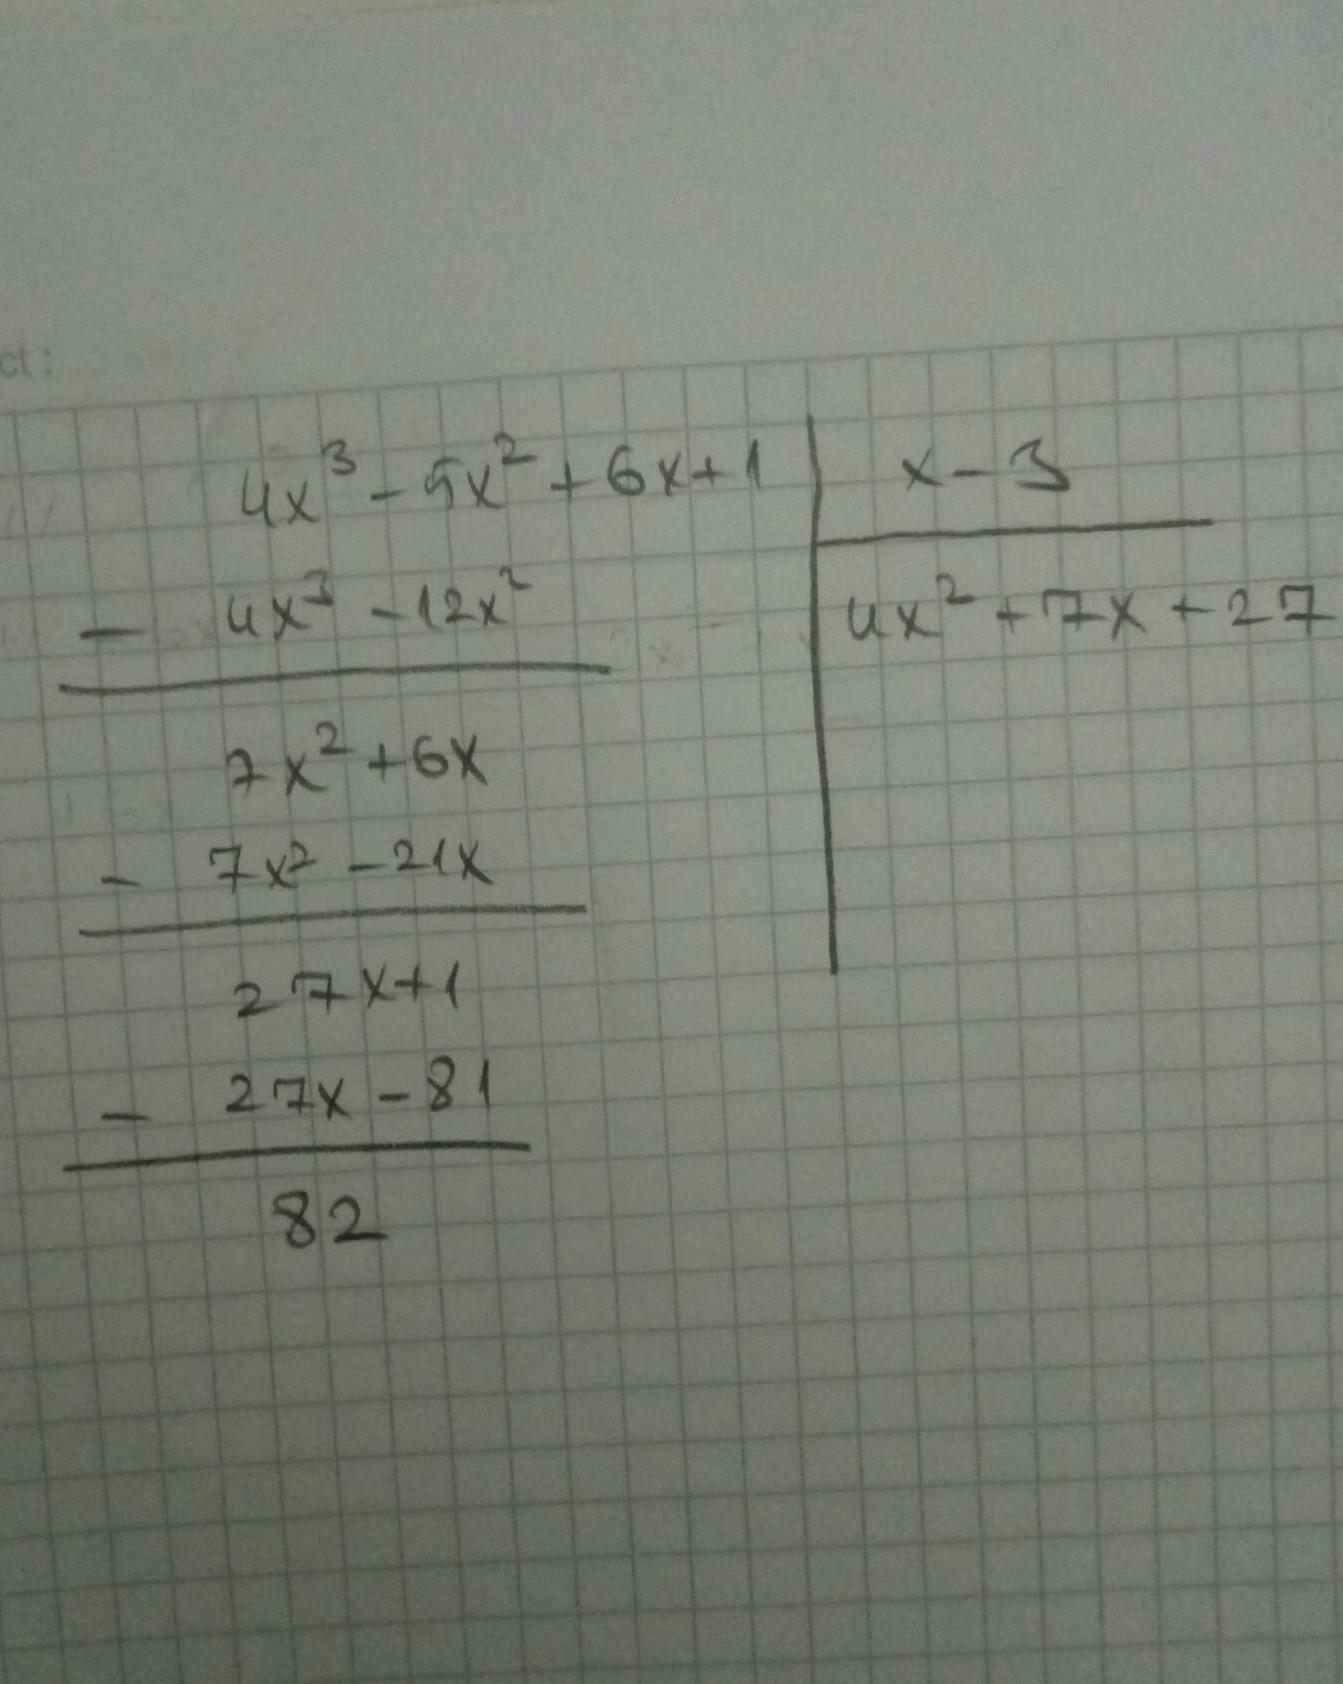 ct:
4x³ - 5x² + 6x + 1 | x - 3
- 4x³ - 12x² | 4x² + 7x + 27
7x² + 6x
- 7x² - 21x
27x + 1
- 27x - 81
82